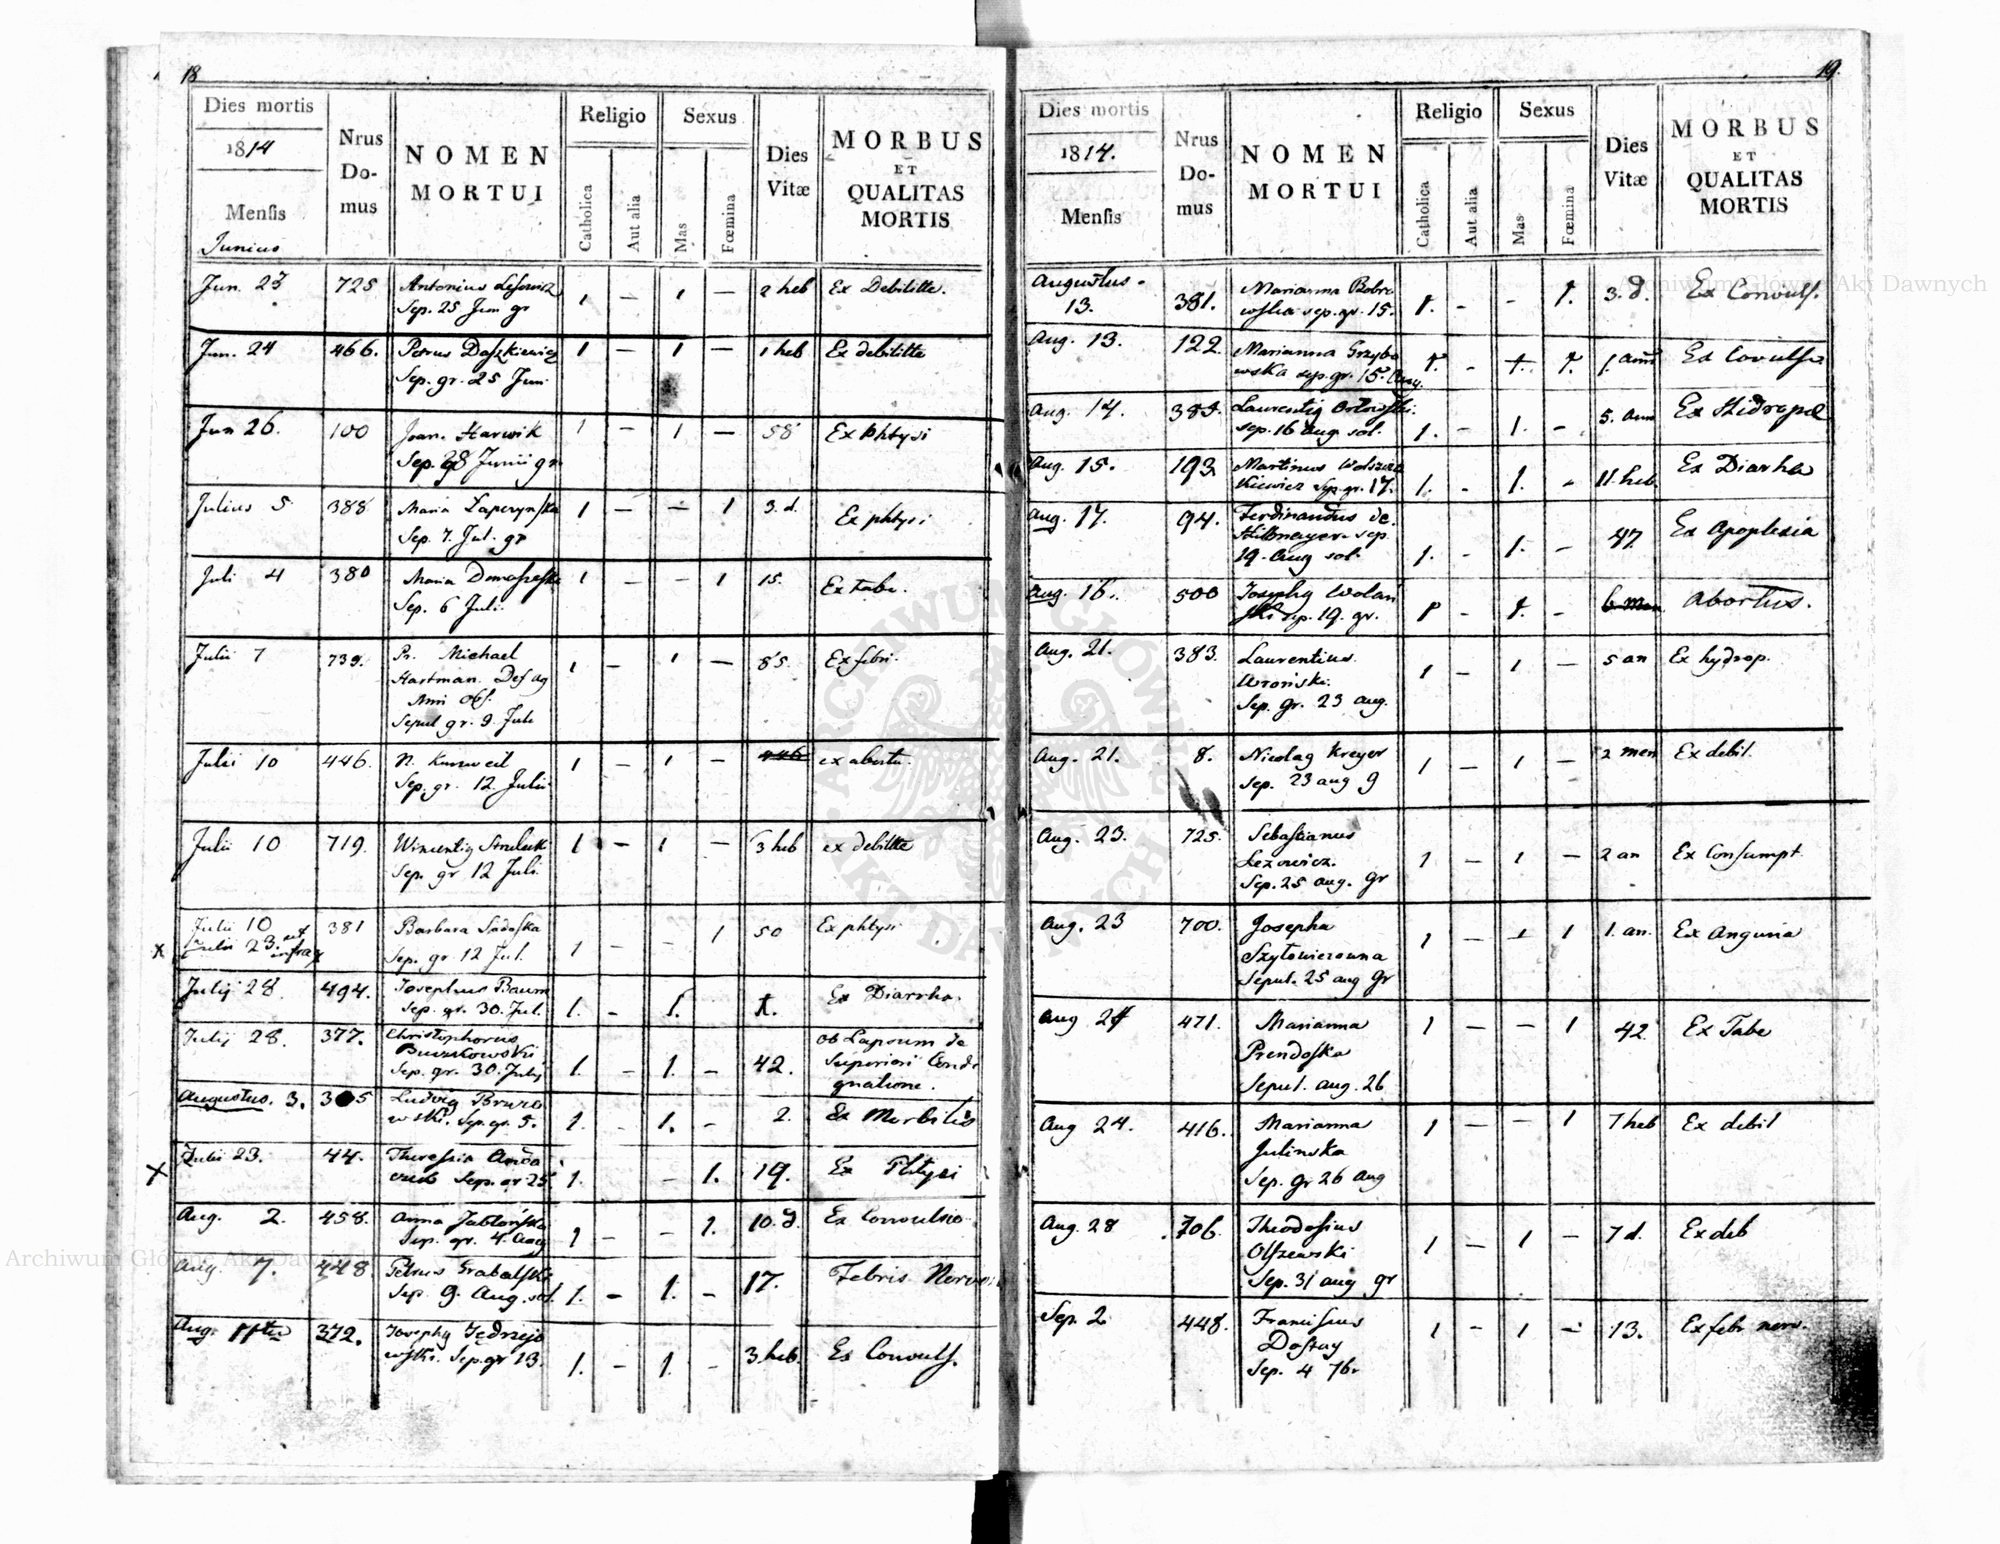 18
Dies mortis
1814
Mensis
Junius
Nrus Do- mus
NOMEN MORTUI
Religio
Catholica
Aut alia
Sexus
Mas
Fœmina
Dies Vitæ
MORBUS ET QUALITAS MORTIS
Jun. 23 725 Antonius 1 — 1 2 heb Ex Debilitte.
Sep. 25 Jun gr
Jun. 24 466. Petrus Daszkiewicz 1 — 1 — 1 heb Ex debilitte
Sep. gr. 25 Jun.
Jun 26. 100 Joan. Harwik 1 — 1 — 58 Ex phtysi
Sep. 28 Junii gr
Julius 5 388 Maria 1 — — 1 3. d. Ex phtysi
Sep. 7. Jul. gr
Juli 4 380 Maria 1 — — 1 15. Ex tabe.
Sep. 6 Juli.
Julii 7 739. Pr. Michael 1 — 1 — 85. Ex febri.
Hartman. Def ag
Sepul gr. 9. Juli
Julii 10 446. N. Kurweil 1 — 1 — 446 ex abortu.
Sep. gr. 12. Julii
Julii 10 719. 1 — 1 — 3 heb ex debilitte
Sep. gr 12 Juli.
Julii 10 381 Barbara Sadoska 1 — — 1 50 Ex phtysi
x Julii 23. ut infra x Sep. gr 12 Jul.
Julij 28. 494. Josephus Baum 1. - 1. Ex Diarrha.
Sep. gr. 30. Jul.
Julij 28. 377. Christophorus ob Lapsum de
1. - 1. - 42. Superiori
Sep. gr. 30. Julij gnatione.
Augustus. 3. Ludvig 1. - 1. - 2. Ex Morbilis
wski. Sep. gr. 5.
x Julii 23. 44. Theresia 1. - 1. 19. Ex Phtysi
Sep. gr 25.
Aug. 2. 458. Anna Jabłońska 1 - - 1. 10. d. Ex Convulsio.
Sep. gr. 4. Aug
Aug. 7. 448 Petrus Grabalski 1. - 1. - 17. Febris
Sep. 9. Aug. sol.
Aug. 11tu 372. Josephg Jędrzejo 1. - 1. - 3. heb. Ex Convuls.
wski. Sep. gr 13.
19.
Dies mortis
1814.
Mensis
Nrus Do- mus
NOMEN MORTUI
Religio
Catholica
Aut alia
Sexus
Mas
Fœmina
Dies Vitæ
MORBUS ET QUALITAS MORTIS
Augustus. 13. 381. Marianna Bobro 1. - - 1. 3. d. Ex Convuls.
wska sep. gr. 15.
Aug. 13. 122. Marianna Grzybo 1. - 1. 1. Ex
wska sep. gr. 15. Aug.
Aug. 14. 383. Orłowski. 1. - 1. - 5. ann Ex
sep. 16 Aug sol.
Aug. 15. 193. Martinus 1. - 1. - 11. heb. Ex Diarha
kiewicz Sep. gr. 17.
Aug. 17. 94. Ferdinandus de 1. - 1. - 47. Ex Apoplexia
sep.
19. Aug sol.
Aug. 16. 500 Josephg Wolań 1 - 1. - 6 men Abortus.
ski sep. 19. gr.
Aug. 21. 383. Laurentius 1 — 1 — 5 an Ex hydrop.
Wroński.
Sep. gr. 23 aug.
Aug. 21. 8. Nicolag Kreyer 1 — 1 — 2 men Ex debil.
Sep. 23 aug g
Aug. 23. 725. Sebastianus 1 — 1 — 2 an Ex Consumpt.
Lezowicz.
Sep. 25 aug. gr
Aug. 23 700. Josepha 1 — 1 1 1. an. Ex Anguria
Sepul. 25 aug gr
Aug 24 471. Marianna 1 — — 1 42 Ex Tabe
Prendoska
Sepul. aug. 26
Aug 24. 416. Marianna 1 — — 1 7 heb Ex debil
Julinska
Sep. gr 26 aug
Aug. 28 706. Theodosius 1 — 1 — 7 d. Ex deb
Olszewski
Sep. 31 aug gr
Sep. 2 448. 1 — 1 — 13. Ex febr nerv.
Sep. 4 7br
Archiwum Główne Akt Dawnych
ARCHIWUM GŁÓWNE AKT DAWNYCH